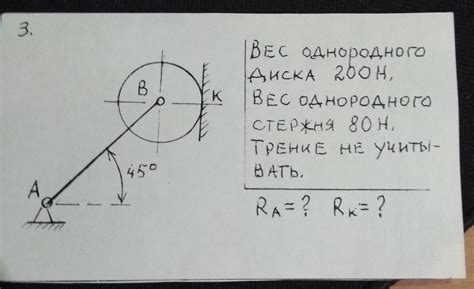 3.
B
K
A
45°
ВЕС ОДНОРОДНОГО
ДИСКА 200Н,
ВЕС ОДНОРОДНОГО
СТЕРЖНЯ 80Н.
ТРЕНИЕ НЕ УЧИТЫ-
ВАТЬ.
RA=? RK=?